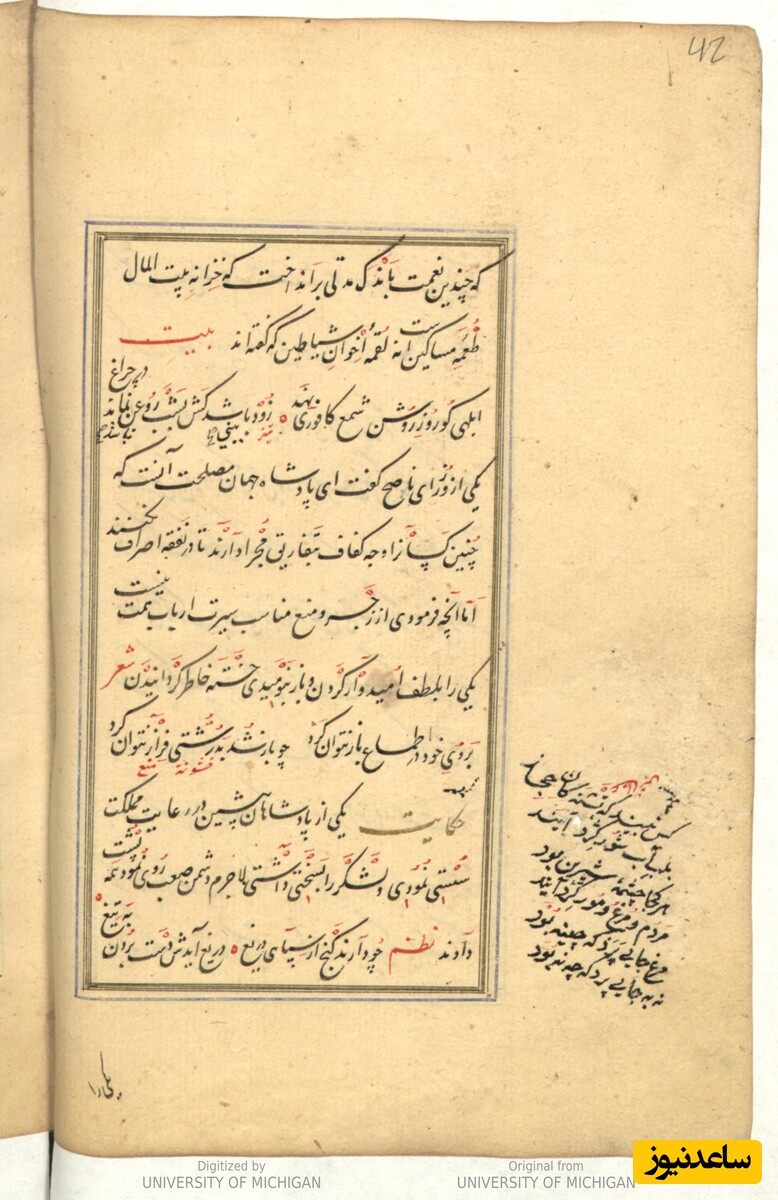 42
که چندین نعمت باندک مدتی برانداخت که خزانه بیت المال
طعمه مساکین است نه لقمه اخوان شیاطین که گفته اند بیت
ابلهی کو روز روشن شمع کافوری نهد زود باشد کش بشب روغن نماند در چراغ
یکی از وزرای ناصح گفت ای پادشاه جهان مصلحت آنست که
چنین کسان را وجه کفاف بتفاریق مجرا دارند تا در نفقه اصراف نکنند
اما آنچه فرمودی از زجر و منع مناسب سیرت ارباب همت نیست
یکی را بلطف امیدوار کردن و باز بنومیدی خسته خاطر گردانیدن شعر
بروی خود در اطماع باز نتوان کرد چو باز شد بدرشتی فراز نتوان کرد
حکایت یکی از پادشاهان پیشین در رعایت مملکت
سستی نمودی و لشکر را بسختی داشتی لاجرم دشمن صعب روی نمود همه پشت
دادند نظم چو دارند گنج از سپاهی دریغ دریغ آیدش دست بردن به تیغ
کس نبیند که تشنه کان حجاز
بلب آب شور گرد آیند
هر کجا چشمه شیرین بود
مردم و مرغ و مور گرد آیند
مرغ جایی پرد که چینه بود
نه به جایی پرد که چی نه بود
Digitized by
UNIVERSITY OF MICHIGAN
Original from
UNIVERSITY OF MICHIGAN
ساعدنیوز